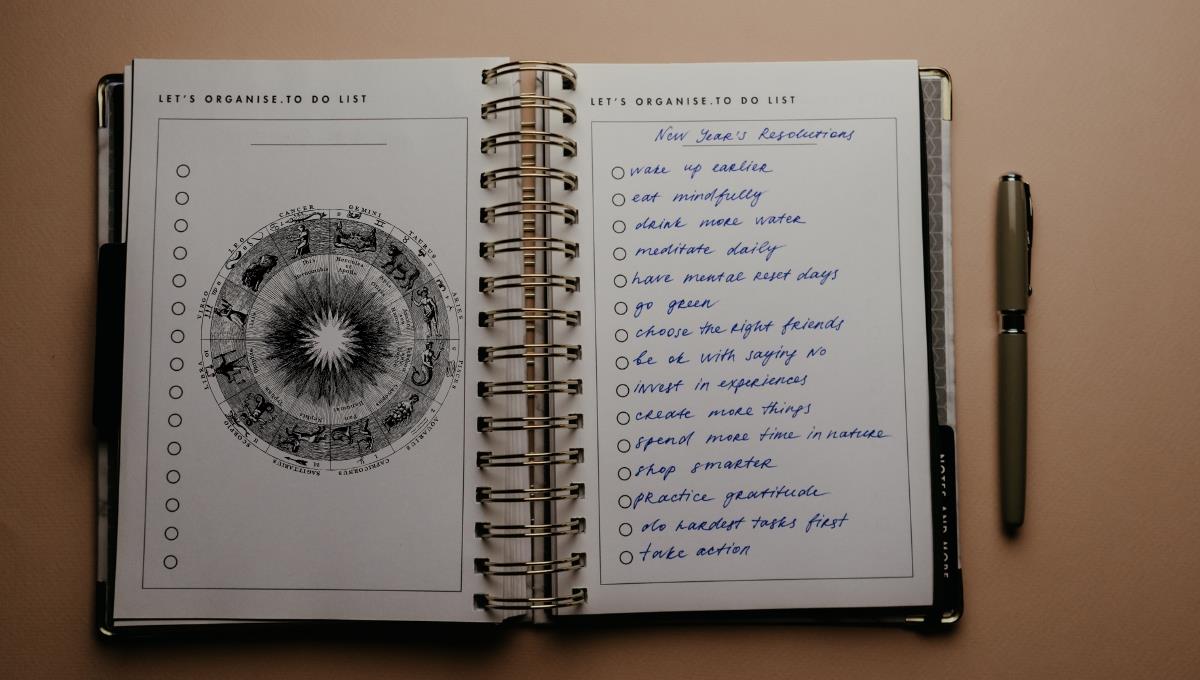 LET'S ORGANISE.TO DO LIST
CANCER
GEMINI
TAURUS
ARIES
PISCES
AQUARIUS
CAPRICORNUS
SAGITTARIUS
SCORPIO
LIBRA
VIRGO
LEO
LET'S ORGANISE.TO DO LIST
New Year's Resolutions
wake up earlier
eat mindfully
drink more water
meditate daily
have mental reset days
go green
choose the right friends
be ok with saying No
invest in experiences
create more things
spend more time in nature
shop smarter
practice gratitude
do hardest tasks first
take action
NOTES AND MORE